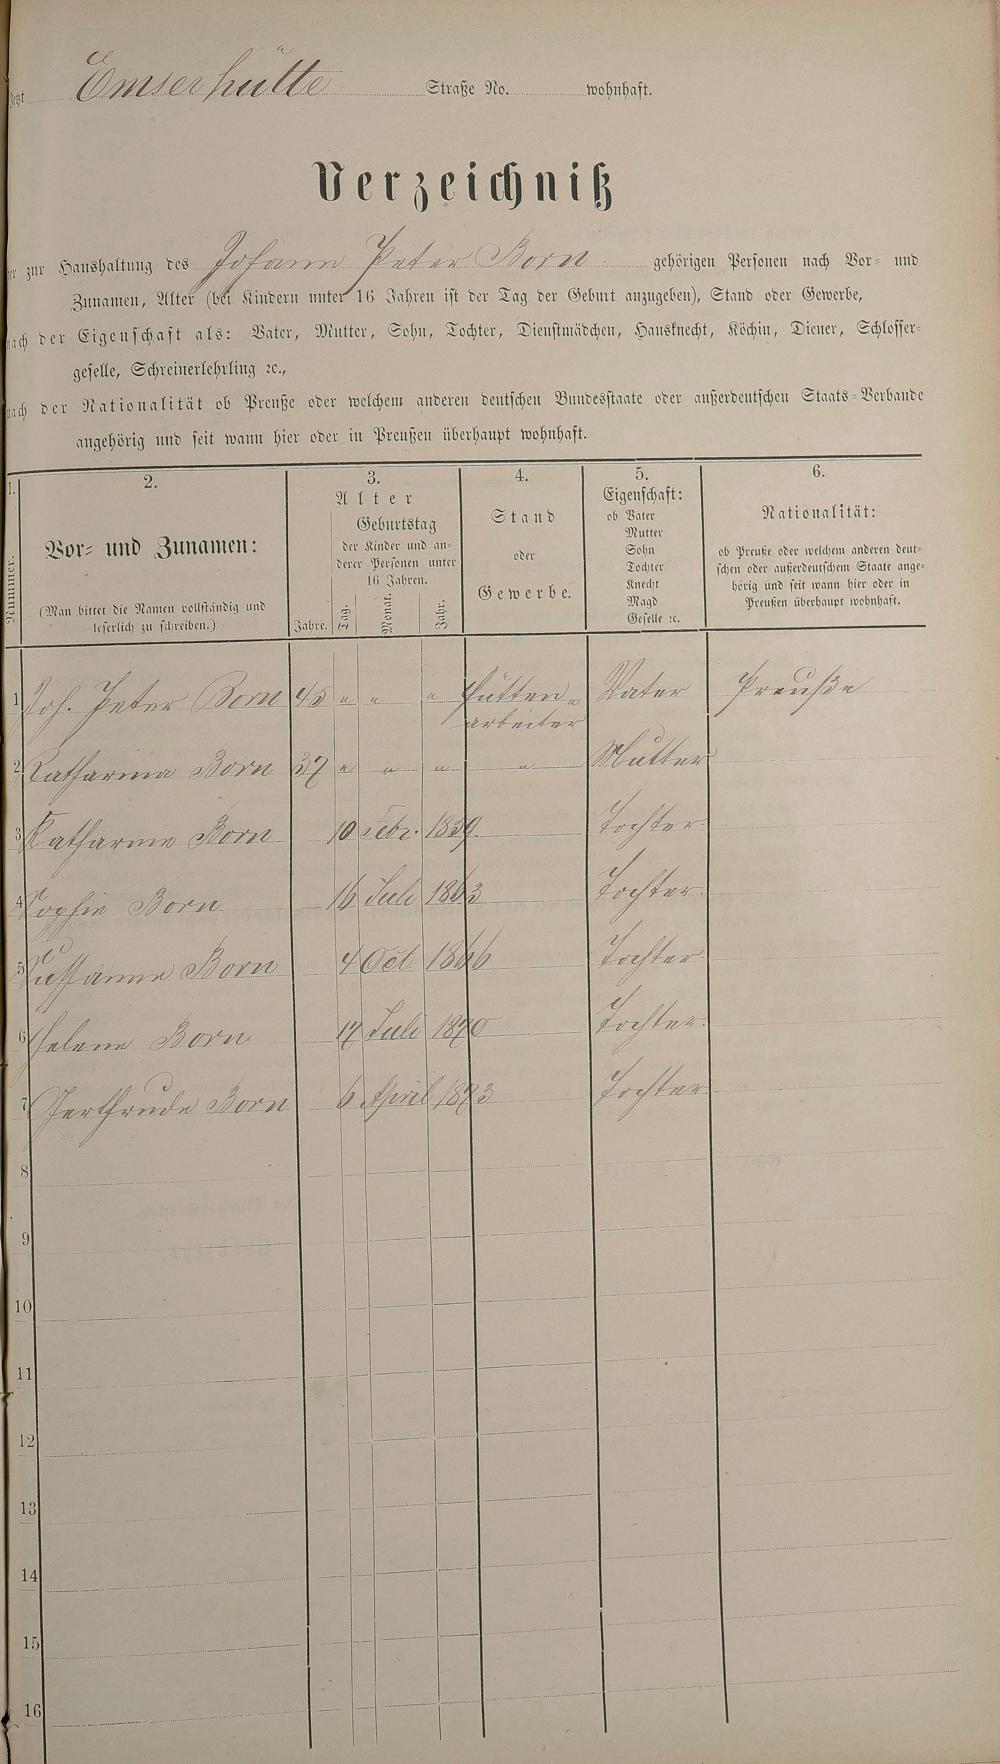 Jetzt Emserhütte Straße No. wohnhaft.
Verzeichniß
der zur Haushaltung des Johann Peter Born gehörigen Personen nach Vor- und
Zunamen, Alter (bei Kindern unter 16 Jahren ist der Tag der Geburt anzugeben), Stand oder Gewerbe,
nach der Eigenschaft als: Vater, Mutter, Sohn, Tochter, Dienstmädchen, Hausknecht, Köchin, Diener, Schlosser-
geselle, Schreinerlehrling ꝛc.,
nach der Nationalität ob Preuße oder welchem anderen deutschen Bundesstaate oder außerdeutschen Staats-Verbande
angehörig und seit wann hier oder in Preußen überhaupt wohnhaft.
1.
Nummer.
2.
Vor- und Zunamen:
(Man bittet die Namen vollständig und
leserlich zu schreiben.)
3.
Alter
Geburtstag
der Kinder und an-
derer Personen unter
16 Jahren.
Jahre. Tag. Monat. Jahr.
4.
Stand
oder
Gewerbe.
5.
Eigenschaft:
ob Vater
Mutter
Sohn
Tochter
Knecht
Magd
Geselle ꝛc.
6.
Nationalität:
ob Preuße oder welchem anderen deut-
schen oder außerdeutschem Staate ange-
hörig und seit wann hier oder in
Preußen überhaupt wohnhaft.
1 Joh. Peter Born 45 " " " Hütten- Vater Preuße
arbeiter
2 Katharina Born 37 " " " " Mutter
3 Katharine Born 10 Febr. 1859. Tochter.
4 Sophie Born 16 Juli 1863 Tochter.
5 Sussanne Born 4 Oct. 1866 Tochter
6 Helene Born 17 Juli 1870 Tochter.
7 Gerthrude Born 6 April 1873 Tochter.
8
9
10
11
12
13
14
15
16